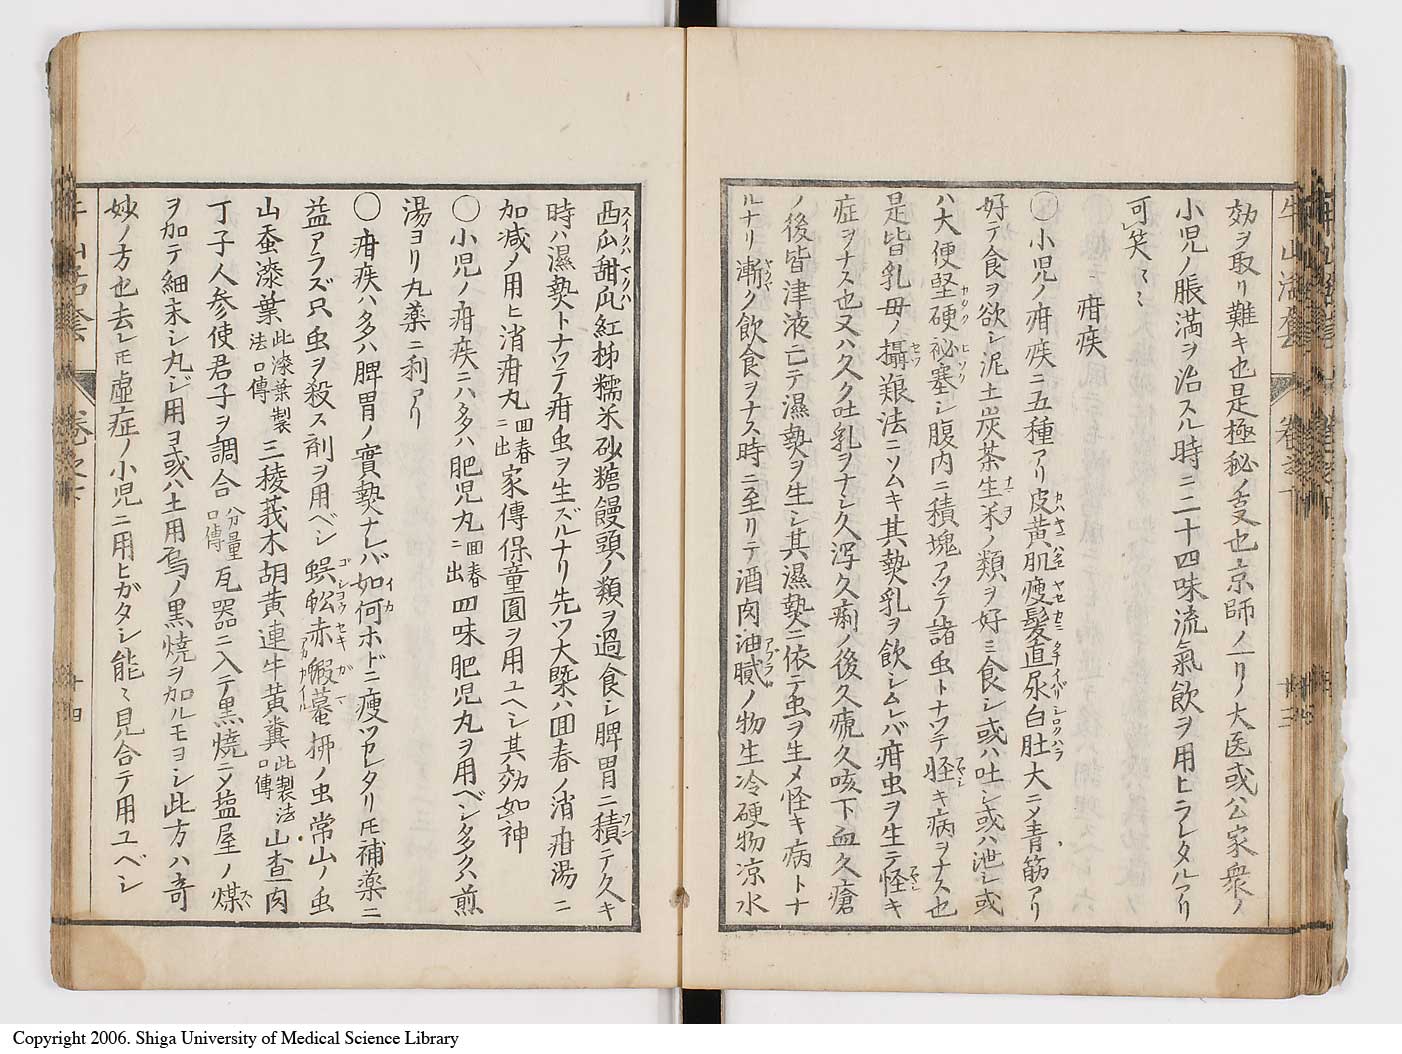 効ヲ取リ難キ也是極秘ノ叓也京師ノ一リノ大医或公家衆ノ
小児ノ脹満ヲ治スル時ニ二十四味流氣飲ヲ用ヒラレタルアリ
可笑〻〻
疳疾
○小児ノ疳疾ニ五種アリ皮黄肌痩髪直尿白肚大ニメ青筋アリ
好テ食ヲ欲シ泥土炭茶生米ノ類ヲ好ミ食シ或ハ吐シ或ハ泄シ或
ハ大便堅硬秘塞シ腹内ニ積塊アツテ諸虫トナツテ怪キ病ヲナス也
是皆乳母ノ攝養法ニソムキ其熱乳ヲ飲シムレバ疳虫ヲ生テ怪キ
症ヲナス也又ハ久ク吐乳ヲナシ久瀉久痢ノ後久瘧久咳下血久瘡
ノ後皆津液亡テ濕熱ヲ生シ其濕熱ニ依テ虫ヲ生メ怪キ病トナ
ルナリ漸ク飲食ヲナス時ニ至リテ酒肉油膩ノ物生冷硬物凉水
西瓜甜瓜紅柹糯米砂糖饅頭ノ類ヲ過食シ脾胃ニ積テ久キ
時ハ濕熱トナツテ疳虫ヲ生ズルナリ先ツ大槩ハ囬春ノ消疳湯ニ
加减ノ用ヒ消疳丸囬春ニ出家傳保童圓ヲ用ユヘシ其効如神
○小児ノ疳疾ニハ多ハ肥児丸囬春ニ出四味肥児丸ヲ用ベシ多クハ煎
湯ヨリ丸薬ニ利アリ
○疳疾ハ多ハ脾胃ノ實熱ナレバ如何ホドニ痩ツカレタリ圧補薬ニ
益アラズ只虫ヲ殺ス剤ヲ用ベシ蜈蚣赤蝦蟇栁ノ虫常山ノ虫
山蚕漆葉此漆葉製法口傳三稜莪木胡黄連牛黄糞此製法口傳山查肉
丁子人参使君子ヲ調合分量口傳瓦器ニ入テ黒焼ニメ塩屋ノ煤
ヲ加テ細末シ丸ジ用ヨ或ハ土用烏ノ黒焼ヲ加ルモヨシ此方ハ竒
妙ノ方也去レ圧虚症ノ小児ニ用ヒガタシ能〻見合テ用ユベシ
牛山活套 卷之下 十三
牛山活套 卷之下 十四
Copyright 2006. Shiga University of Medical Science Library